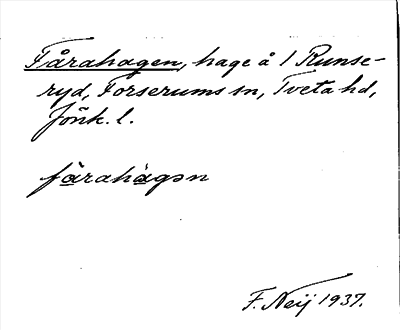 Fårahagen, hage å 1 Runse-
ryd, Forserums sn, Tveta hd,
Jönk. l.
fårahàgən
F. Neij 1937.